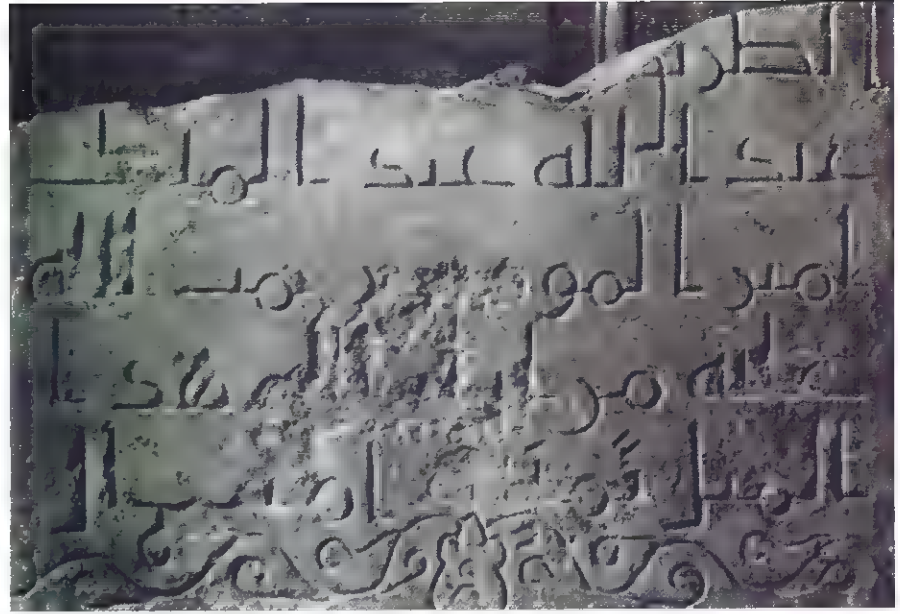 الطريق
عبد الله عبد الملك
امير المومنين رحمت الله
عليه من ايليا الى هذا
الميل اميال